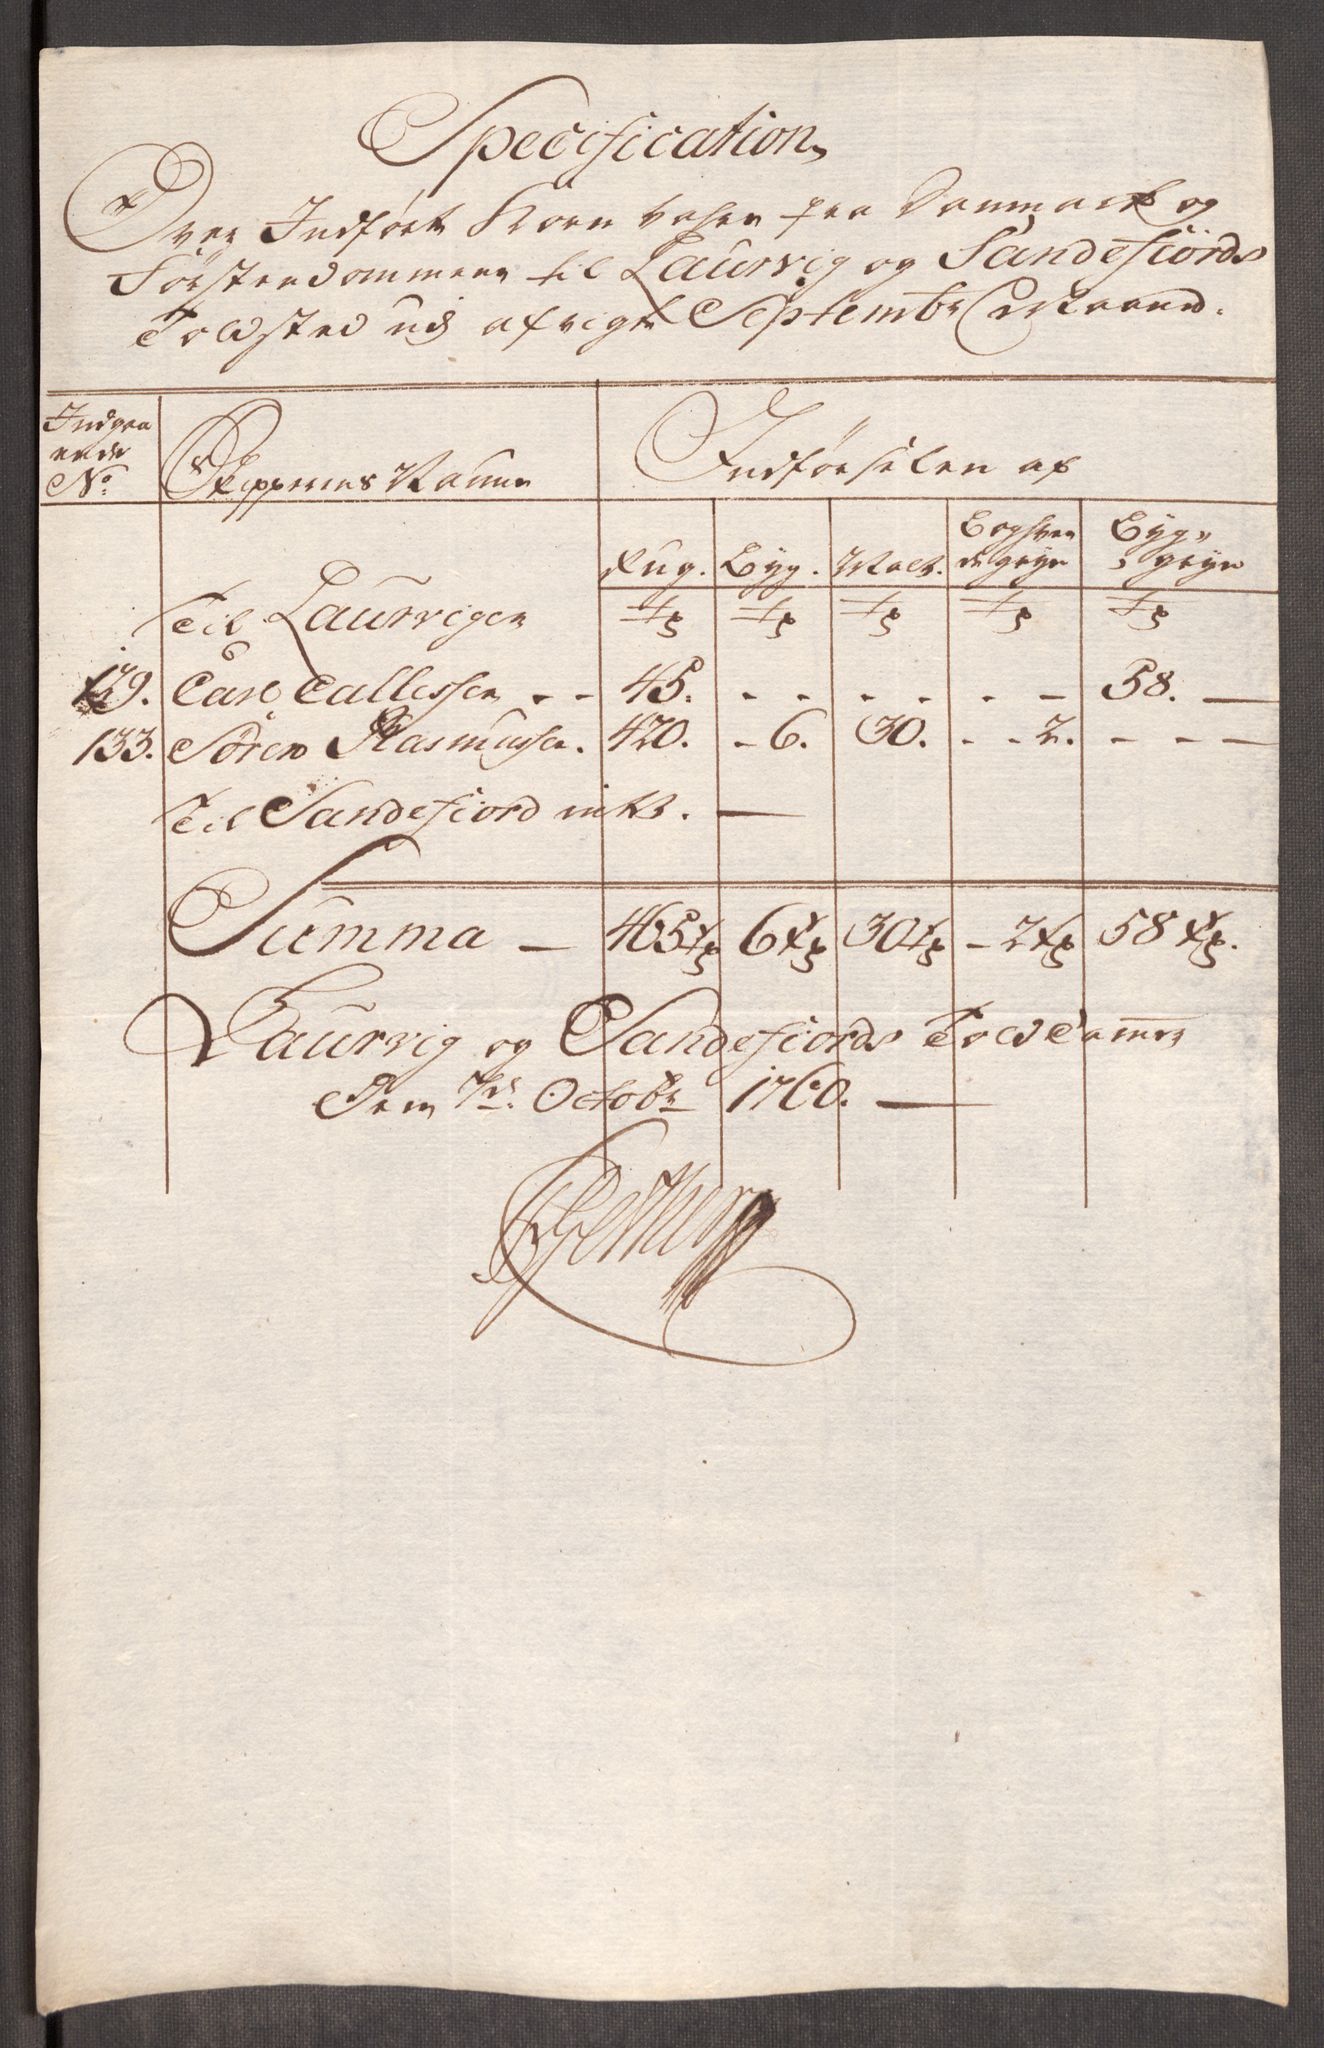 Specification
Over Indført Korn Vahre fra Danmark og
Førstendommene til Laurvig og Sandefiords
Toldsted udi afvigte Septembr Maaned.
Indgaa
ende
No. Skippernes Nafne Indførselen af
Rug. Byg. Malt. Boghve
de gryn Byg
gryn
Til Laurvigen
129. Carl Callessen - - 45. - - - - - - 58. -
133. Søren Rasmussen. 420. - 6. 30. - - 2. - - - -
Til Sandefiord intet. -
Summa - 465 6 30 - 2 58
Laurvig og Sandefiords Told Cammer
Dem 7de Octobr 1760. -